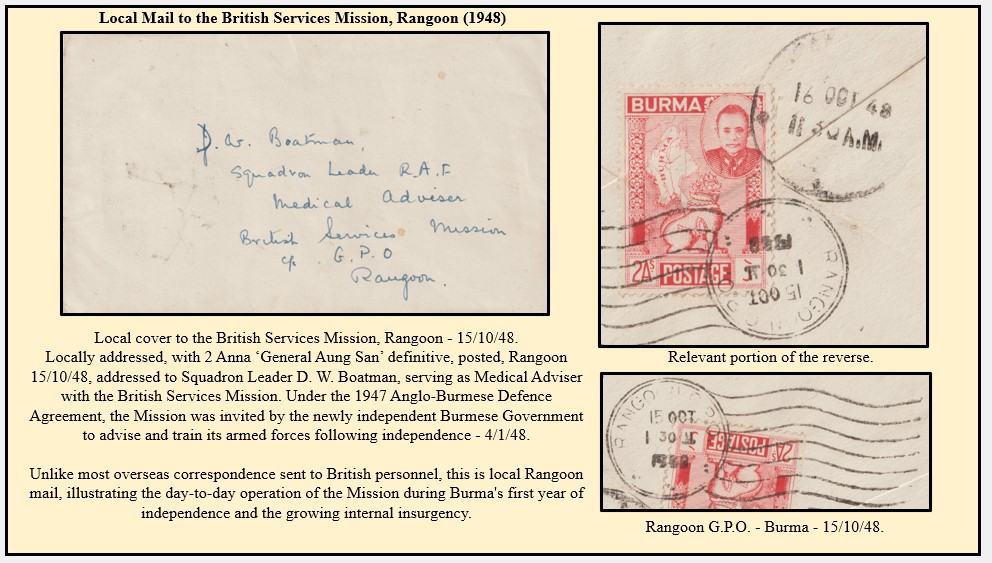 Local Mail to the British Services Mission, Rangoon (1948)
D. W. Boatman,
Squadron Leader R.A.F
Medical Adviser
British Services Mission
c/o G.P.O
Rangoon.
Local cover to the British Services Mission, Rangoon - 15/10/48.
Locally addressed, with 2 Anna ‘General Aung San’ definitive, posted, Rangoon
15/10/48, addressed to Squadron Leader D. W. Boatman, serving as Medical Adviser
with the British Services Mission. Under the 1947 Anglo-Burmese Defence
Agreement, the Mission was invited by the newly independent Burmese Government
to advise and train its armed forces following independence - 4/1/48.
Unlike most overseas correspondence sent to British personnel, this is local Rangoon
mail, illustrating the day-to-day operation of the Mission during Burma's first year of
independence and the growing internal insurgency.
16 OCT 48
11 30 A.M.
BURMA
BURMA
2AS POSTAGE
RANGO
15 OCT
1 30
Relevant portion of the reverse.
RANGO
15 OCT
1 30
2AS POSTAGE
Rangoon G.P.O. - Burma - 15/10/48.